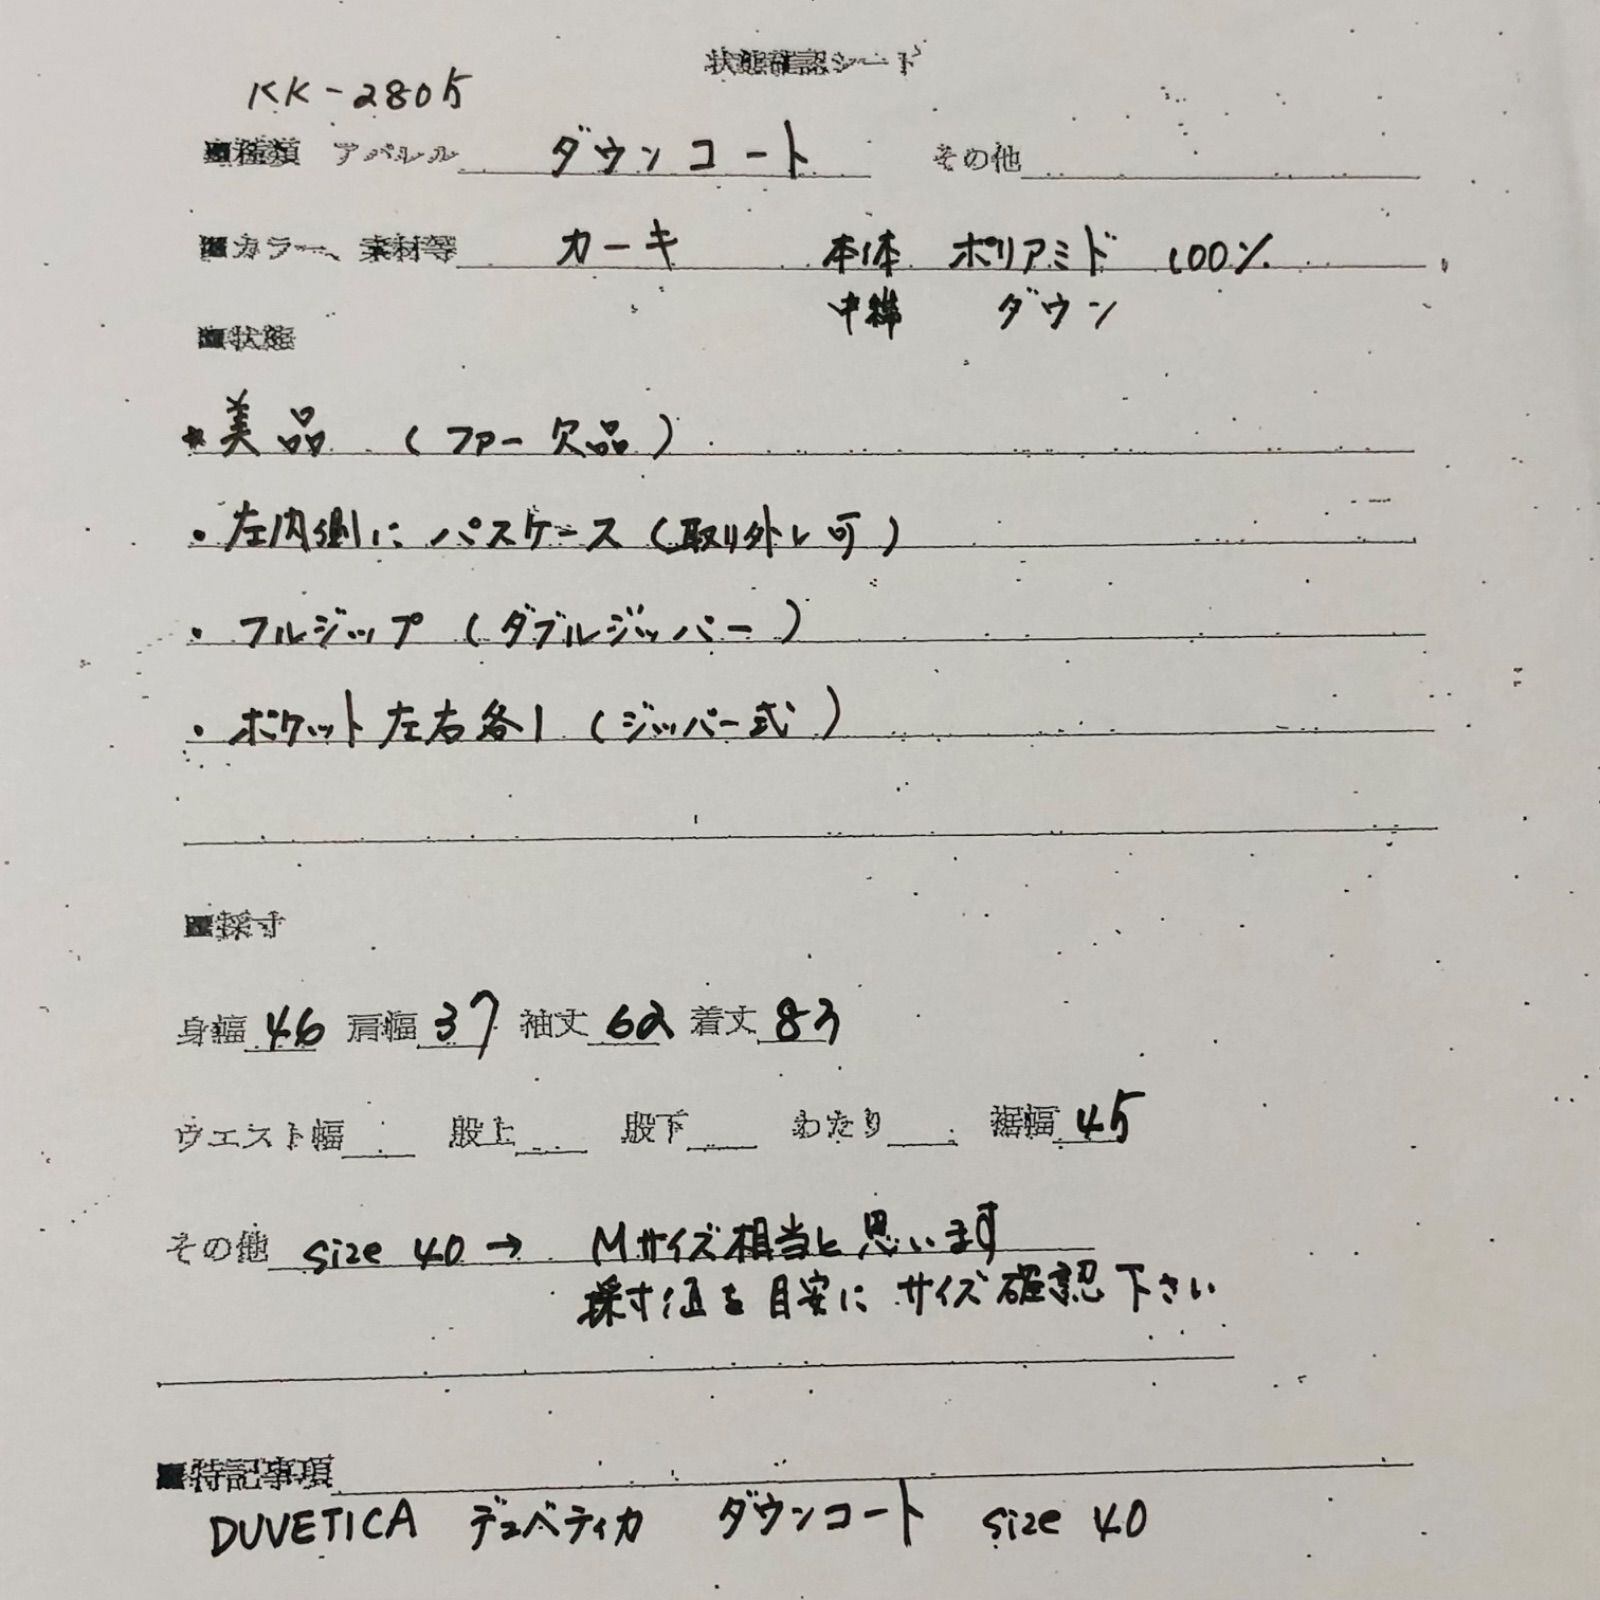 状態確認シート
KK-2805
■種類 アパレル ダウンコート その他
■カラー、素材等 カーキ 本体 ポリアミド 100%
中綿 ダウン
■状態
★美品 (ファー欠品)
・左内側に パスケース (取り外し可)
・フルジップ (ダブルジッパー)
・ポケット左右各1 (ジッパー式)
■採寸
身幅 46 肩幅 37 袖丈 62 着丈 83
ウエスト幅 股上 股下 わたり 裾幅 45
その他 size 40 → Mサイズ相当と思います
採寸値を目安に サイズ確認下さい
■特記事項
DUVETICA デュベティカ ダウンコート size 40